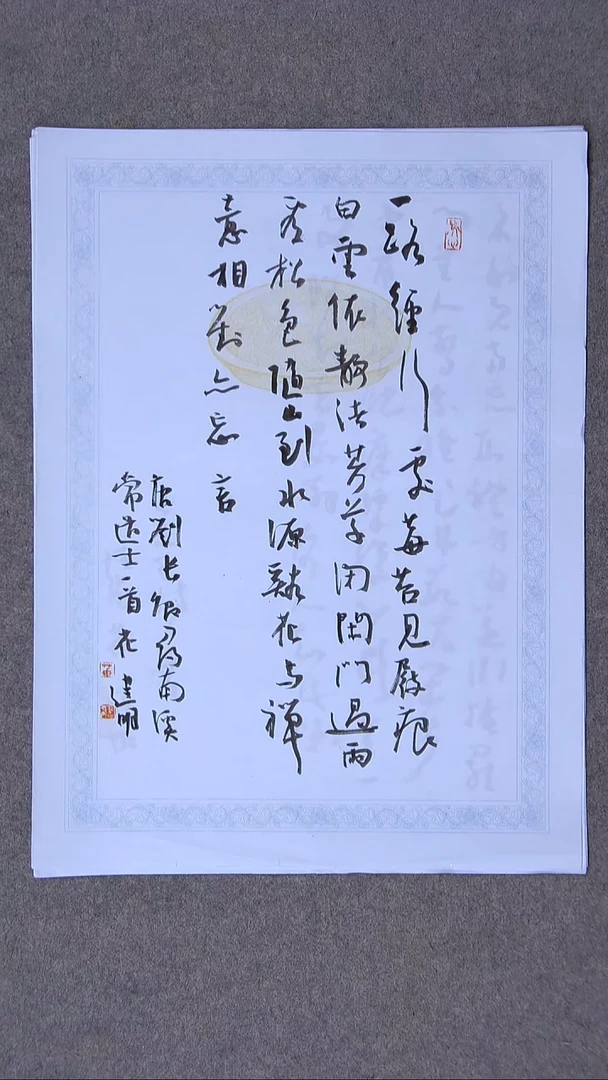 一路經行處莓苔見屐痕
白雲依靜渚芳草閉閑門過雨
看松色随山到水源谿花与禅
意相對亦忘言
唐劉长卿尋南溪
常道士一首 花建明